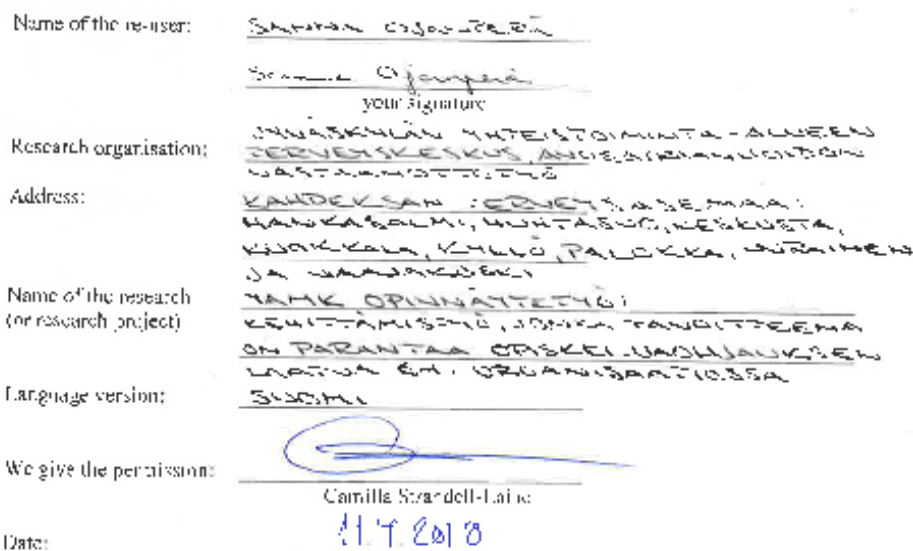 Name of the re-user: SANNA OJANPERÄ
Ojanperä
your signature
Research organisation: JYVÄSKYLÄN YHTEISTOIMINTA-ALUEEN
TERVEYSKESKUS, AVOSAIRAANHOIDON
VASTAANOTTOTYÖ
Address: KAHDEKSAN TERVEYSASEMAA:
HANKASALMI, HUHTASUO, KESKUSTA,
KUOKKALA, KYLLÖ, PALOKKA, UURAINEN
JA VAAJAKOSKI
Name of the research YAMK OPINNÄYTETYÖ:
(or research project) KEHITTÄMISTYÖ, JONKA TAVOITTEENA
ON PARANTAA OPISKELIJAOHJAUKSEN
LAATUA EM. ORGANISAATIOSSA
Language version: SUOMI
We give the permission:
Camilla Strandell-Laine
Date: 2018